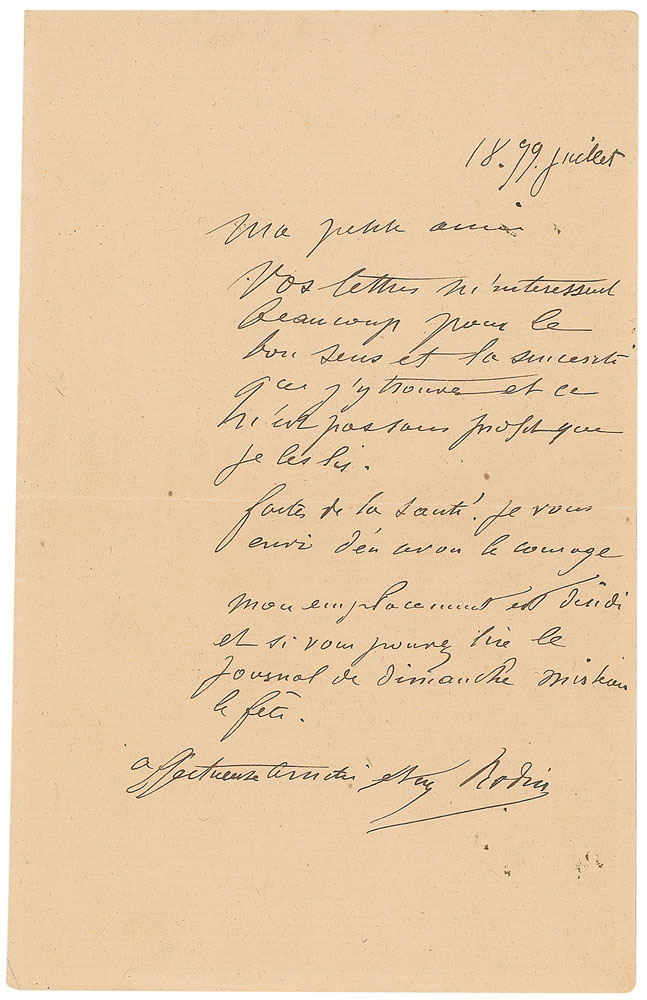 18.99 juillet
Ma petite amie
Vos lettres m'interessent
beaucoup pour le
bon sens et la sincerité
que j'y trouve et ce
n'est pas sans profit que
je les lis.
faites de la santé. je vous
envi d'en avoir le courage
mon emplacement est décidé
et si vous pouvez lire le
Journal de dimanche
la fête.
affectueuse amitié Rodin